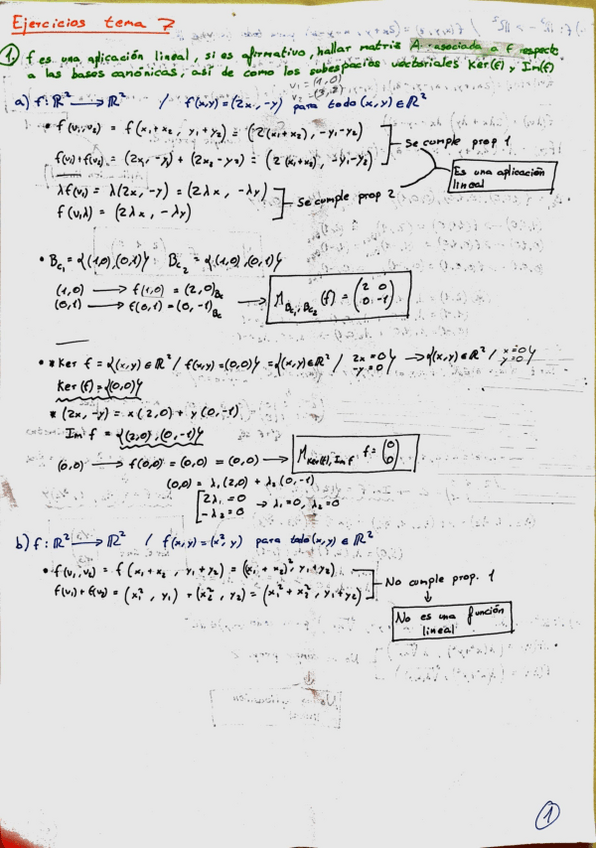 Ejercicios tema 7
1. f es una aplicación lineal, si es afirmativo, hallar matriz A asociada a f respecto
a las bases canónicas, así de como los subespacios vectoriales Ker(f) y Im(f)
v₁ = (1,0)
a) f: ℝ² → ℝ² / f(x,y) = (2x, -y) para todo (x,y) ∈ ℝ²
• f(v₁,v₂) = f(x₁+x₂, y₁+y₂) = (2(x₁+x₂), -y₁-y₂)
f(v₁)+f(v₂) = (2x₁, -y₁) + (2x₂ - y₂) = (2(x₁+x₂), -y₁-y₂)
Se cumple prop 1
λf(v₁) = λ(2x, -y) = (2λx, -λy)
f(v₁λ) = (2λx, -λy)
Se cumple prop 2
Es una aplicación
lineal
• B_{C₁} = {(1,0),(0,1)} B_{C₂} = {(1,0),(0,1)}
(1,0) → f(1,0) = (2,0)_{Bc}
(0,1) → f(0,1) = (0,-1)_{Bc}
→ M_{Bc₁,Bc₂} (f) = (2 0
0 -1)
• * Ker f = {(x,y) ∈ ℝ² / f(x,y) = (0,0)} = {(x,y) ∈ ℝ² / 2x=0 -y=0} → {(x,y) ∈ ℝ² / x=0 y=0}
Ker(f) = {(0,0)}
* (2x, -y) = x(2,0) + y(0,-1)
Im f = {(2,0), (0,-1)}
(0,0) → f(0,0) = (0,0) = (0,0) → M_{Ker(f), Im f} f = (0
0)
(0,0) = λ₁(2,0) + λ₂(0,-1)
2λ₁ = 0
-λ₂ = 0
→ λ₁=0, λ₂=0
b) f: ℝ² → ℝ² / f(x,y) = (x², y) para todo (x,y) ∈ ℝ²
• f(v₁,v₂) = f(x₁+x₂, y₁+y₂) = ((x₁+x₂)², y₁+y₂)
f(v₁)+f(v₂) = (x₁², y₁) + (x₂², y₂) = (x₁²+x₂², y₁+y₂)
No cumple prop. 1
No es una función
lineal
1